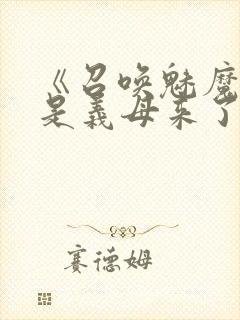 《召唤魅魔
是義母来了
赛德姆